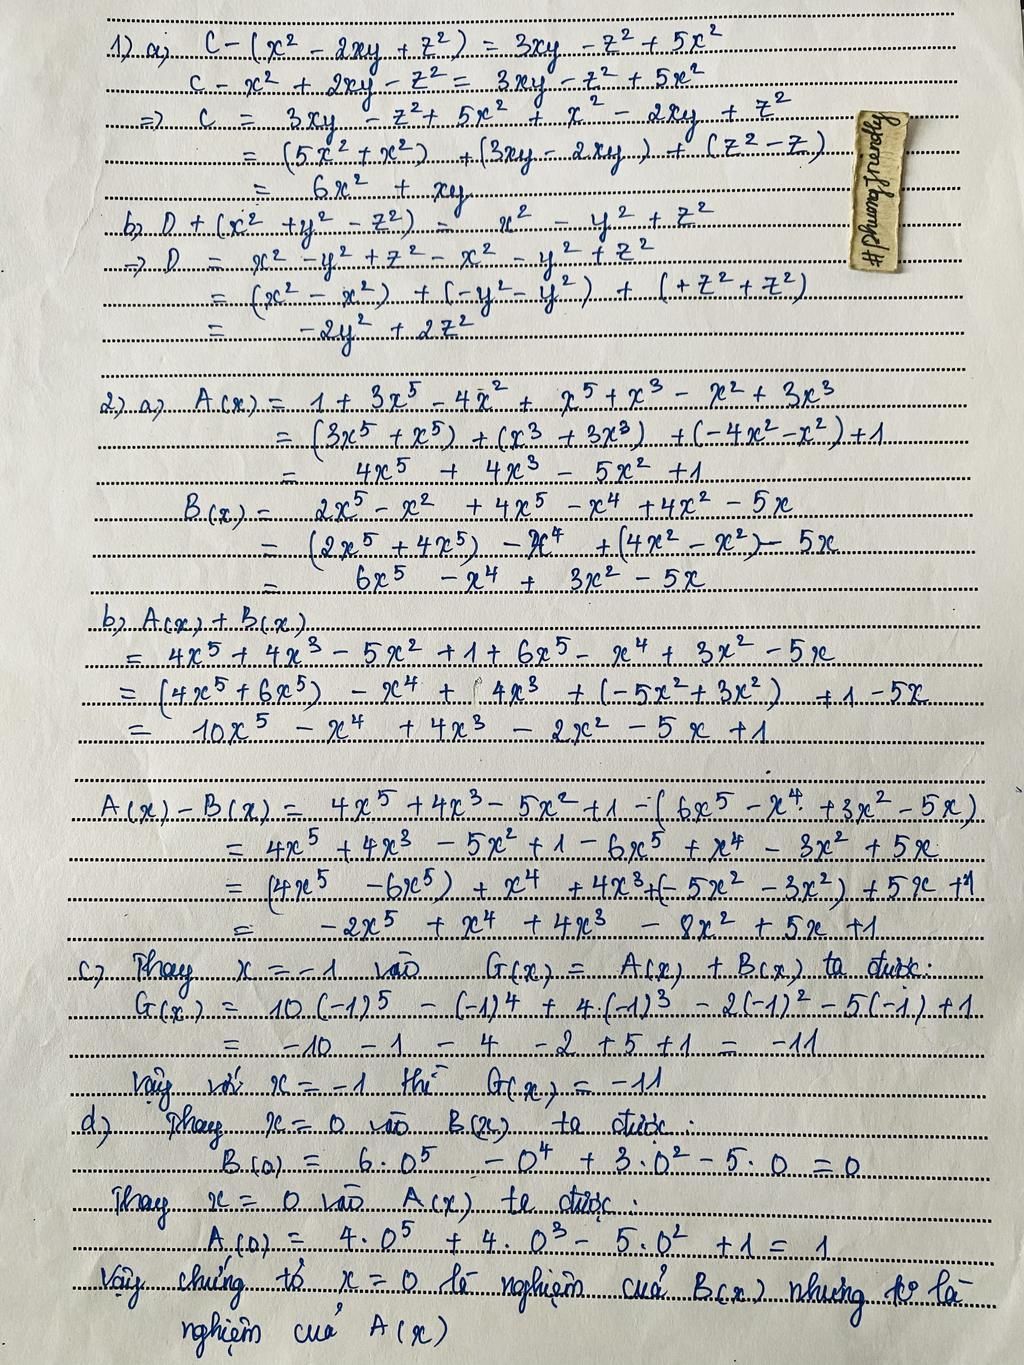 1) a, C - (x² - 2xy + z²) = 3xy - z² + 5x²
C - x² + 2xy - z² = 3xy - z² + 5x²
=> C = 3xy - z² + 5x² + x² - 2xy + z²
= (5x² + x²) + (3xy - 2xy) + (z² - z)
= 6x² + xy
#phuongfriendly
b, D + (x² + y² - z²) = x² - y² + z²
=> D = x² - y² + z² - x² - y² + z²
= (x² - x²) + (-y² - y²) + (+z² + z²)
= -2y² + 2z²
2) a, A(x) = 1 + 3x⁵ - 4x² + x⁵ + x³ - x² + 3x³
= (3x⁵ + x⁵) + (x³ + 3x³) + (-4x² - x²) + 1
= 4x⁵ + 4x³ - 5x² + 1
B(x) = 2x⁵ - x² + 4x⁵ - x⁴ + 4x² - 5x
= (2x⁵ + 4x⁵) - x⁴ + (4x² - x²) - 5x
= 6x⁵ - x⁴ + 3x² - 5x
b, A(x) + B(x)
= 4x⁵ + 4x³ - 5x² + 1 + 6x⁵ - x⁴ + 3x² - 5x
= (4x⁵ + 6x⁵) - x⁴ + 4x³ + (-5x² + 3x²) + 1 - 5x
= 10x⁵ - x⁴ + 4x³ - 2x² - 5x + 1
A(x) - B(x) = 4x⁵ + 4x³ - 5x² + 1 - (6x⁵ - x⁴ + 3x² - 5x)
= 4x⁵ + 4x³ - 5x² + 1 - 6x⁵ + x⁴ - 3x² + 5x
= (4x⁵ - 6x⁵) + x⁴ + 4x³ + (-5x² - 3x²) + 5x + 1
= -2x⁵ + x⁴ + 4x³ - 8x² + 5x + 1
c, Thay x = -1 vào G(x) = A(x) + B(x) ta được:
G(x) = 10.(-1)⁵ - (-1)⁴ + 4.(-1)³ - 2(-1)² - 5(-1) + 1
= -10 - 1 - 4 - 2 + 5 + 1 = -11
Vậy với x = -1 thì G(x) = -11
d) Thay x = 0 vào B(x) ta được:
B(0) = 6.0⁵ - 0⁴ + 3.0² - 5.0 = 0
Thay x = 0 vào A(x) ta được:
A(0) = 4.0⁵ + 4.0³ - 5.0² + 1 = 1
Vậy chứng tỏ x = 0 là nghiệm của B(x) nhưng ko là
nghiệm của A(x)